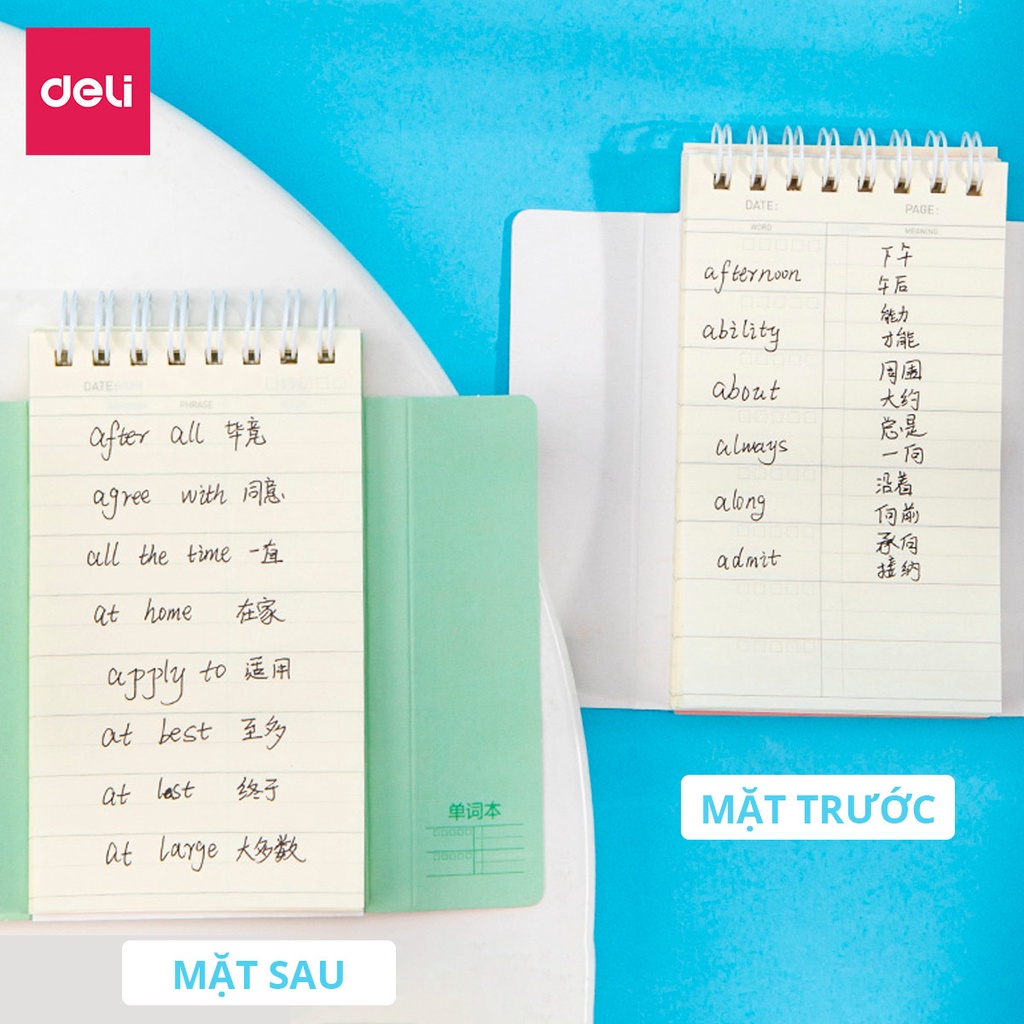 deli
DATE:
PHRASE
after all 毕竟
agree with 同意
all the time 一直
at home 在家
apply to 适用
at best 至多
at last 终于
at large 大多数
单词本
MẶT SAU
DATE: PAGE:
WORD MEANING
下午
afternoon
午后
能力
ability
才能
周围
about
大约
总是
always
一向
沿着
along
向前
承向
admit
接纳
MẶT TRƯỚC